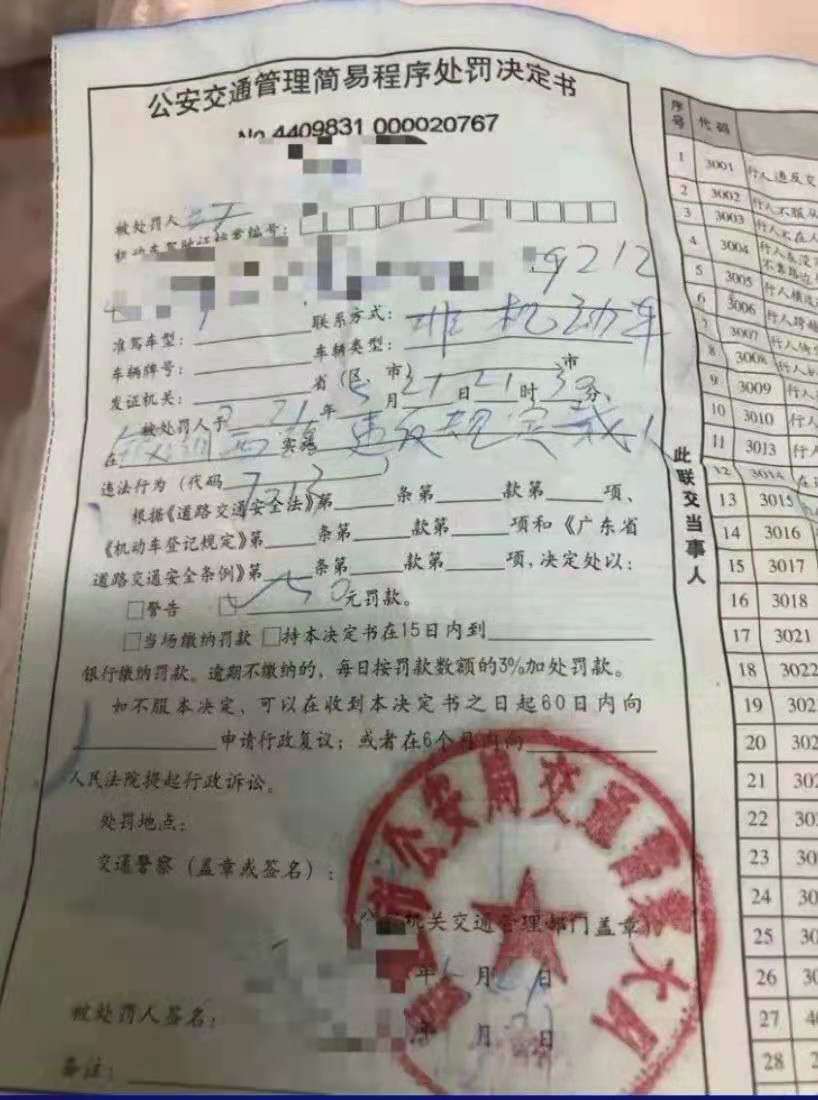 公安交通管理简易程序处罚决定书
No 4409831 000020767
被处罚人
机动车驾驶证档案编号:
9212
准驾车型: 联系方式:
车辆牌号: 车辆类型: 非机动车
发证机关: 省(区、市) 市
被处罚人于 21年 5月21日21时30分、
在 实施 违反规定载人
违法行为(代码 )
根据《道路交通安全法》第 条第 款第 项、
《机动车登记规定》第 条第 款第 项和《广东省
道路交通安全条例》第 条第 款第 项,决定处以:
□警告 □ 50元罚款。
□当场缴纳罚款 □持本决定书在15日内到
银行缴纳罚款。逾期不缴纳的,每日按罚款数额的3%加处罚款。
如不服本决定,可以在收到本决定书之日起60日内向
申请行政复议;或者在6个月内向
人民法院提起行政诉讼。
处罚地点:
交通警察(盖章或签名):
机关交通管理部门盖章)
年 月 日
被处罚人签名: 年 月 日
备注:
市公安局交通警察大队
此联交当事人
序号 代码
1 3001 行人违反交
2 3002 行人不服从
3 3003 行人不在人
4 3004 行人在没
不靠路边
5 3005 行人横过
6 3006 行人跨越
7 3007 行人
8 3008 行人
9 3009 行人
10 3010 行人
11 3013 行人
12 3014 在
13 3015
14 3016
15 3017
16 3018
17 3021
18 3022
19 302
20 302
21 302
22 30
23 30
24 30
25 30
26 30
27 4
28 2